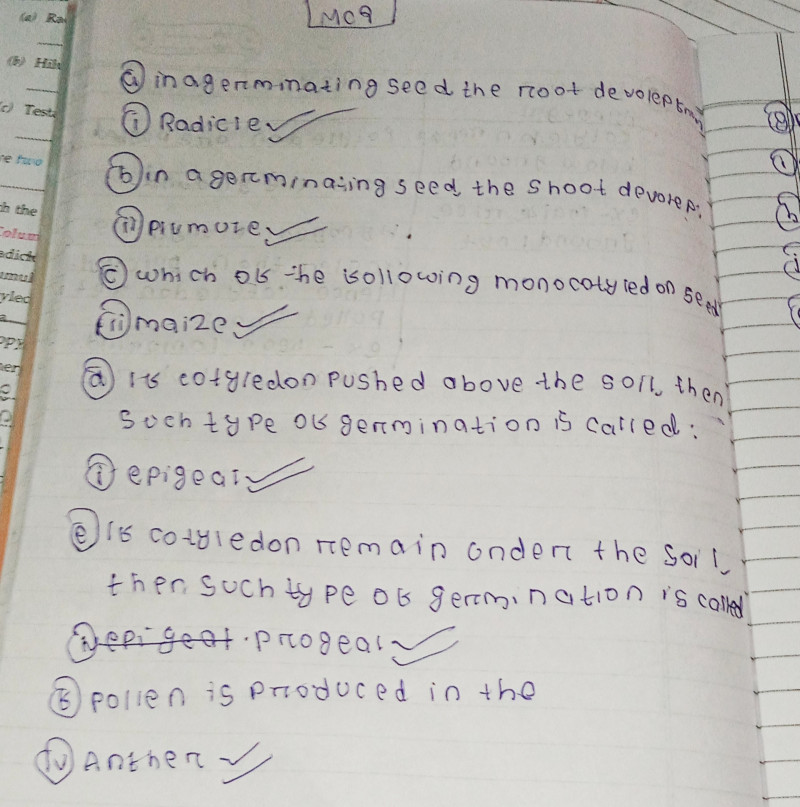 MCQ
(a) in a germinating seed the root devolep from
(i) Radicle
(b) in a germinating seed the shoot devorep:
(ii) Plumule
(c) which of the following monocotyledon seed
(ii) maize
(d) If cotyledon pushed above the soil, then
such type of germination is called:
(i) epigeal
(e) If cotyledon remain under the soil,
then such type of germination is called
progeal
(f) pollen is produced in the
(iv) Anther
(a) Ra
(b) Hil
(c) Test
two
h the
Colum